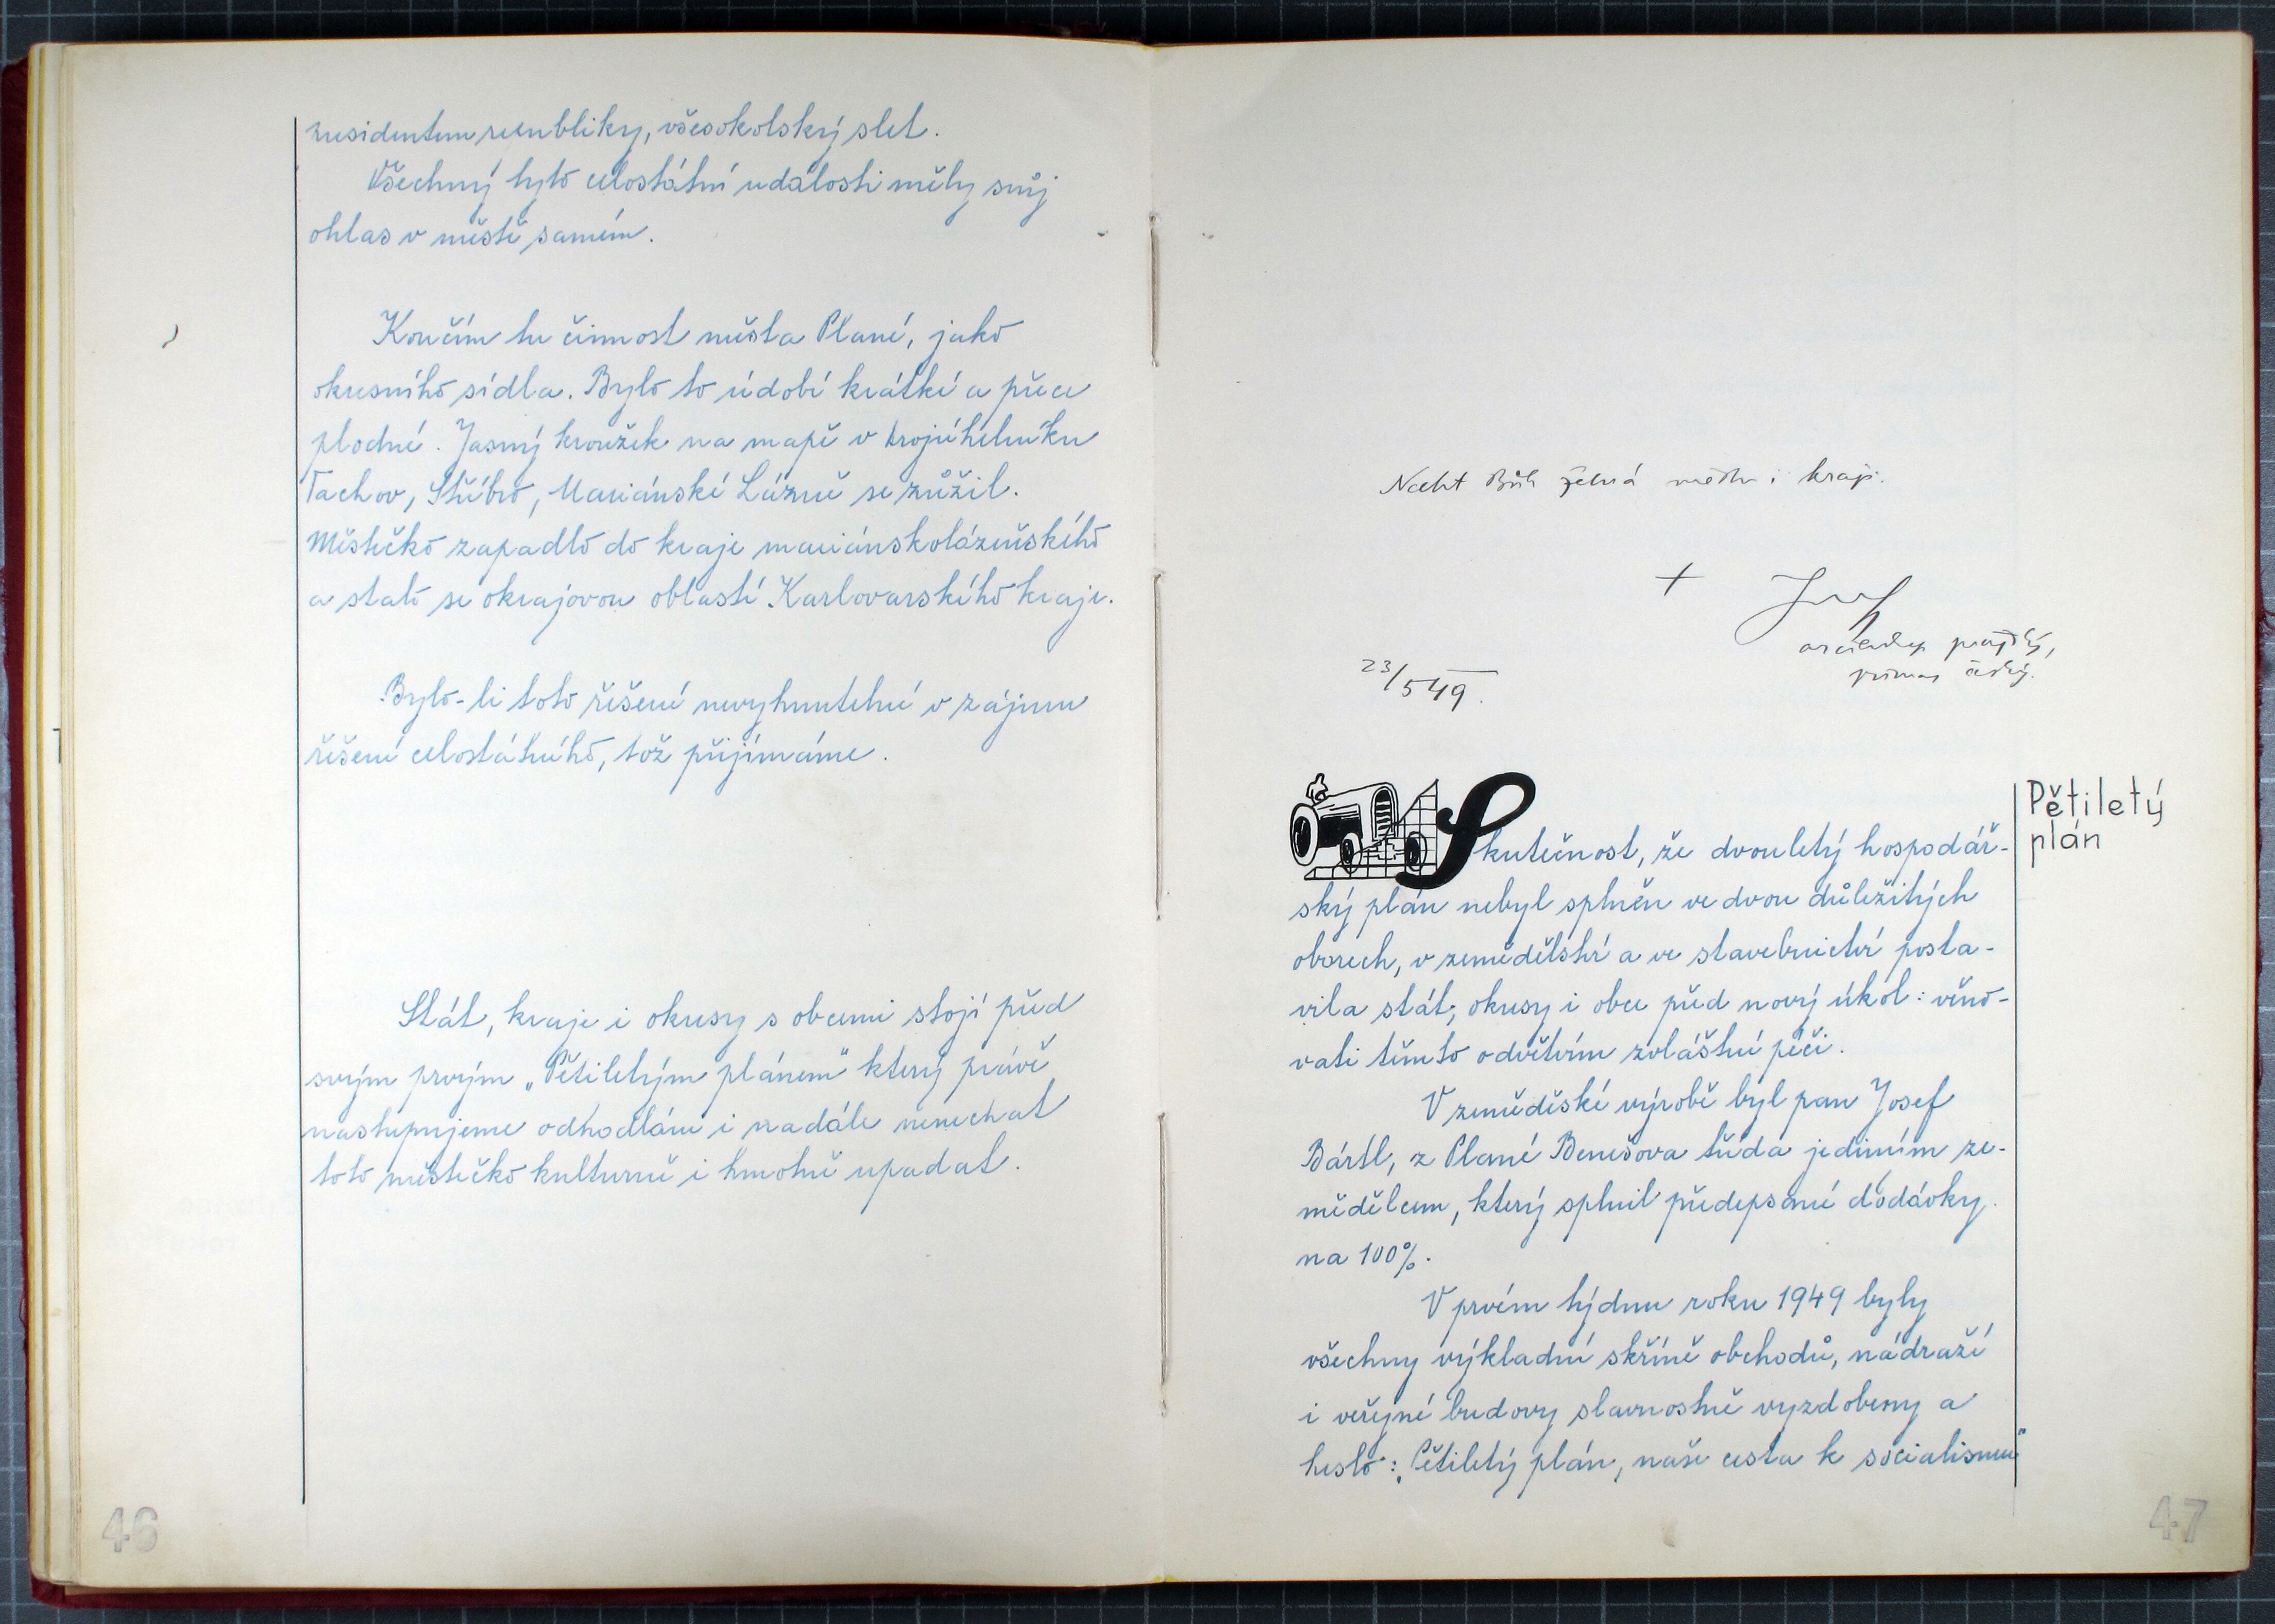 presidentem republiky, všesokolský slet.
Všechny tyto celostátní události měly svůj
ohlas v městě samém.
Končím tu činnost města Plané, jako
okresního sídla. Bylo to údobí krátké a přece
plodné. Jasný kroužek na mapě v trojúhelníku
Tachov, Stříbro, Mariánské Lázně se zúžil.
Městečko zapadlo do kraje mariánskolázeňského
a stalo se okrajovou oblastí Karlovarského kraje.
Bylo-li toto řešení nevyhnutelné v zájmu
řešení celostátního, tož přijímáme.
Stát, kraje i okresy s obcemi stojí před
svým prvým „Pětiletým plánem" který právě
nastupujeme odhodláni i nadále nenechat
toto městečko kulturně i hmotně upadat.
46
Nechť Bůh žehná městu i kraji.
+ Josef
arcibiskup pražský,
primas český.
23/5 49.
Pětiletý
plán
Skutečnost, že dvouletý hospodář-
ský plán nebyl splněn ve dvou důležitých
oborech, v zemědělství a ve stavebnictví posta-
vila stát, okresy i obce před nový úkol: věno-
vati těmto odvětvím zvláštní péči.
V zeměděské výrobě byl pan Josef
Bártl, z Plané Benešova třída jediným ze-
mědělcem, který splnil předepsané dodávky
na 100%.
V prvém týdnu roku 1949 byly
všechny výkladní skříně obchodů, nádraží
i veřejné budovy slavnostně vyzdobeny a
heslo: „Pětiletý plán, naše cesta k socialismu"
47